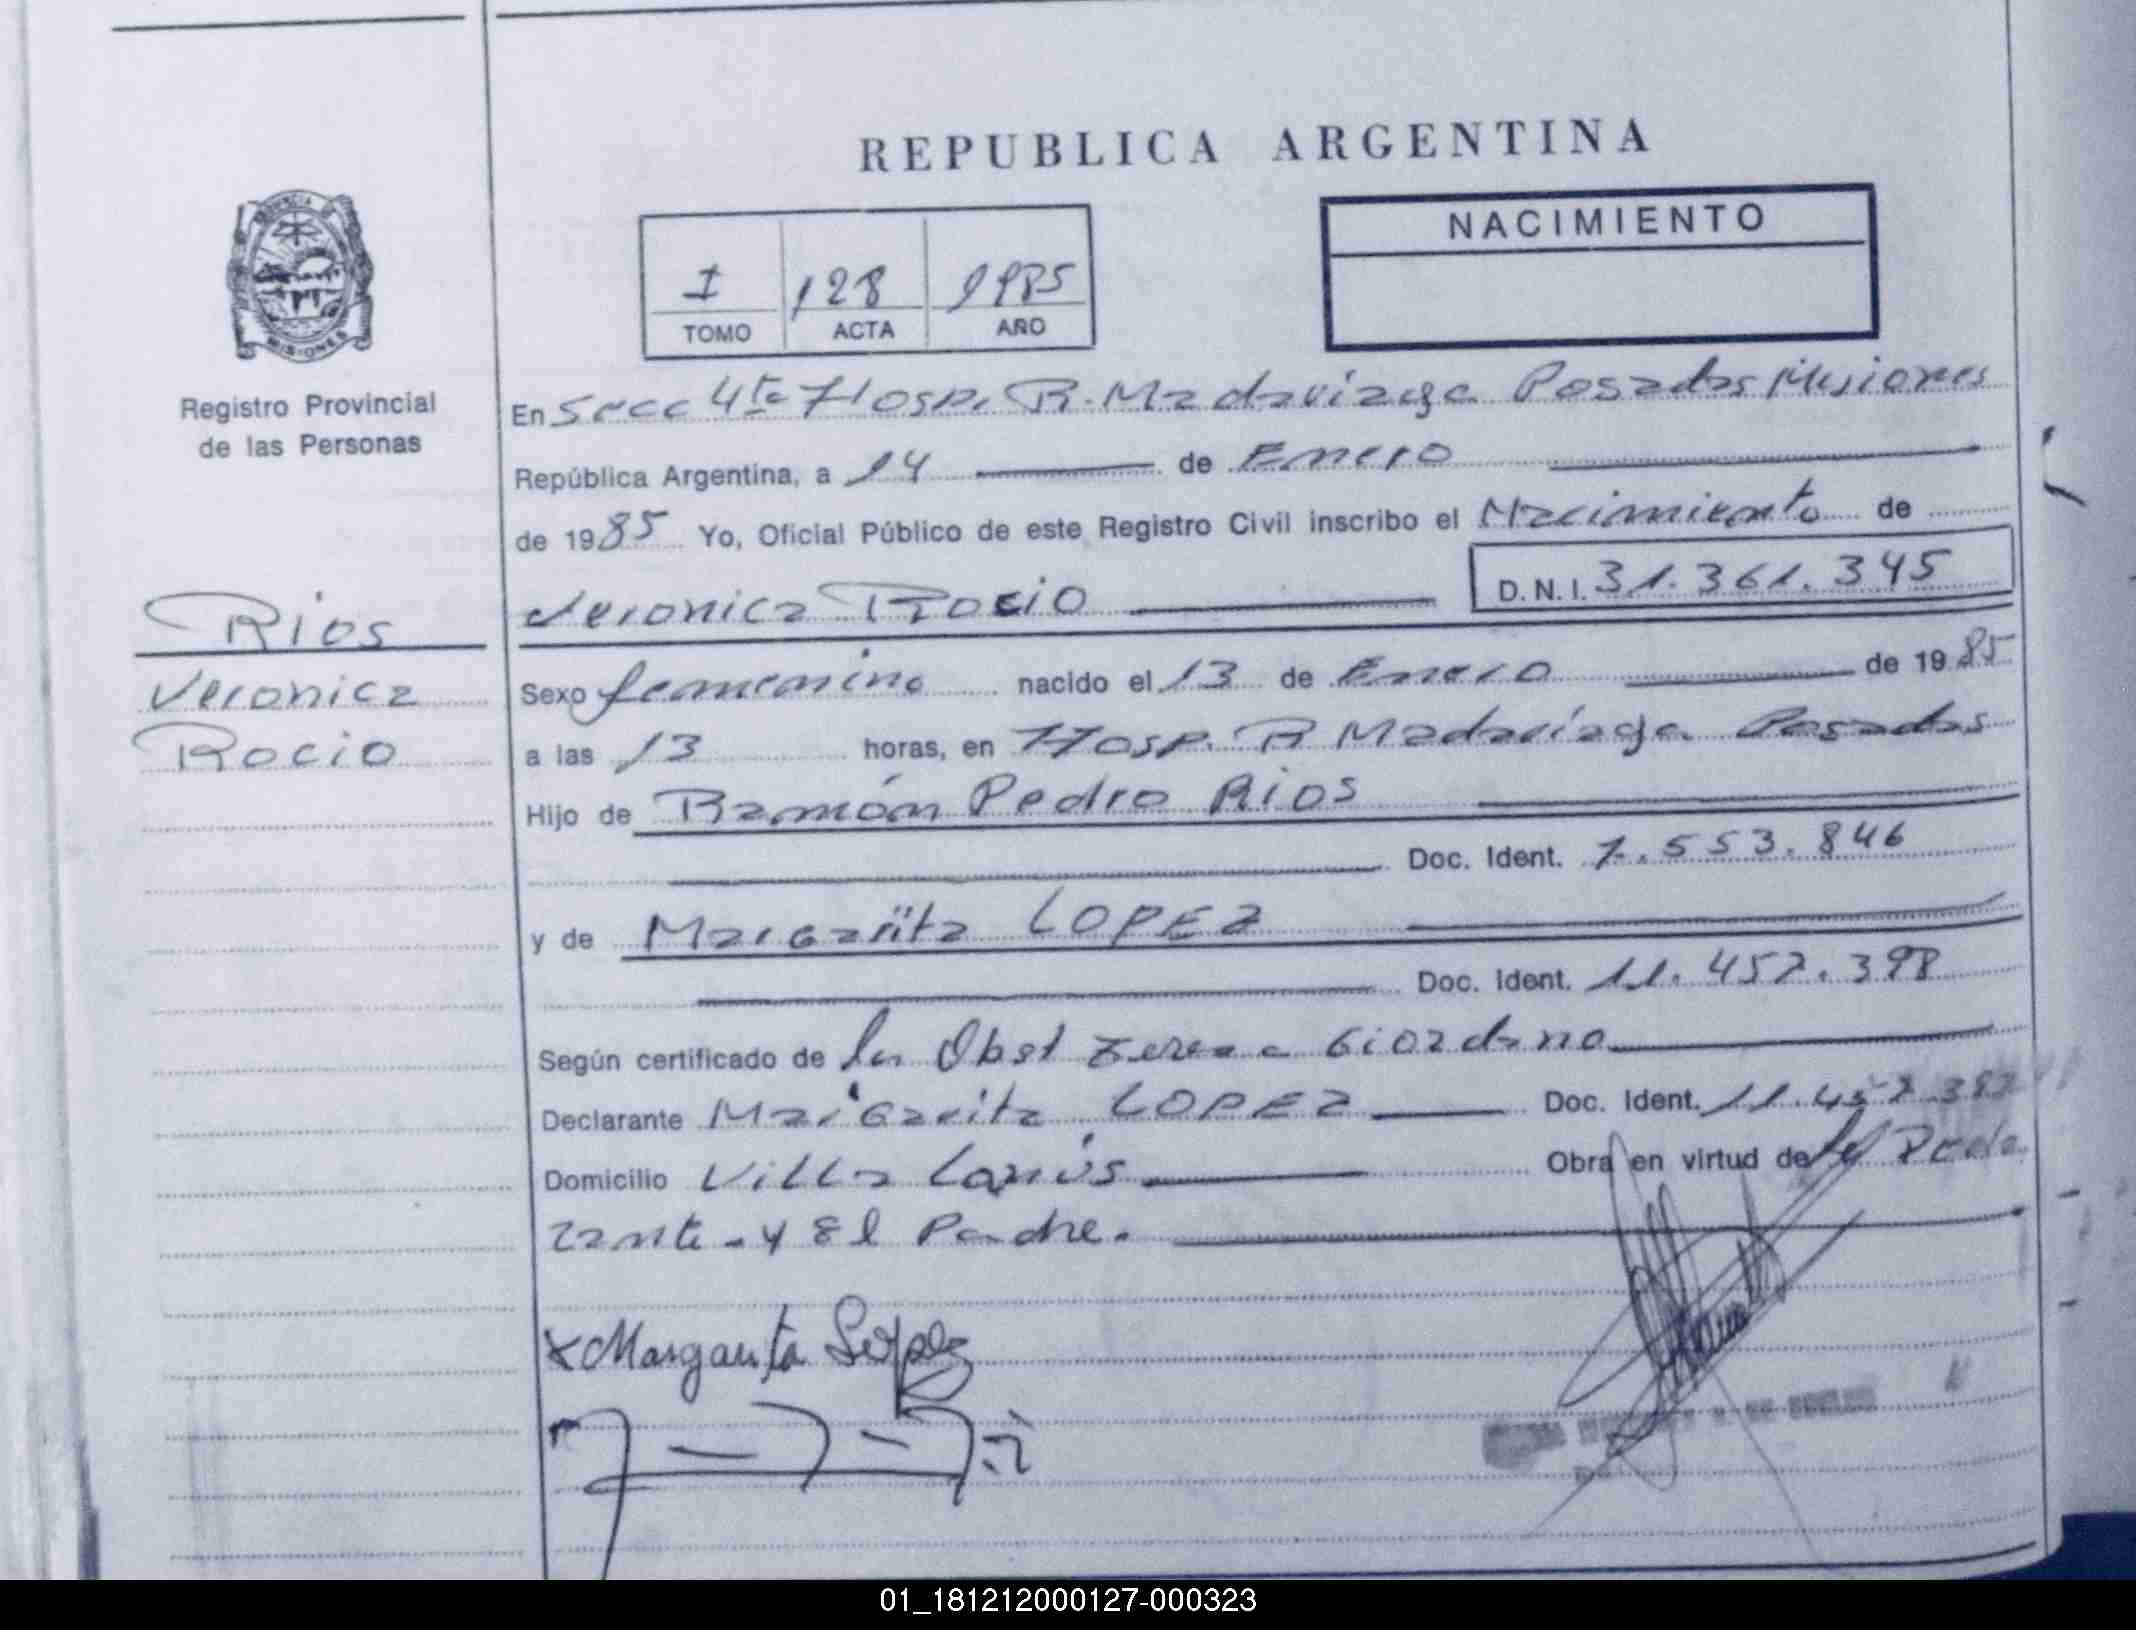 REPUBLICA ARGENTINA
PROVINCIA DE
MISIONES
Registro Provincial
de las Personas
I 128 1985
TOMO ACTA AÑO
NACIMIENTO
En Secc 4ta Hosp. R. Madariaga Posadas Misiones
República Argentina, a 14 de Enero
de 1985 Yo, Oficial Público de este Registro Civil inscribo el Nacimiento de
Veronica Rocio D.N.I. 31.361.345
Rios
Veronica
Rocio
Sexo femenino nacido el 13 de Enero de 1985
a las 13 horas, en Hosp. R Madariaga Posadas
Hijo de Ramón Pedro Rios
Doc. Ident. 7.553.846
y de Margarita LOPEZ
Doc. Ident. 11.457.398
Según certificado de la Obst Giordano
Declarante Margarita LOPEZ Doc. Ident. 11.457.
Domicilio Villa Lanús Obra en virtud de
rante - y El Padre.
x Margarita Lopez
01_181212000127-000323